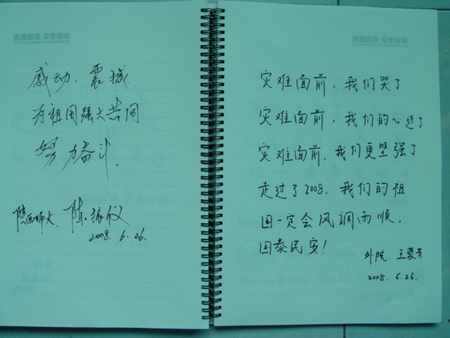 感动、震撼
为祖国强大共同
努力奋斗.
陕西师大.
2008.6.26.
灾难面前，我们哭了
灾难面前，我们的心近了
灾难面前，我们更坚强了
走过了2008，我们的祖
国一定会风调雨顺，
国泰民安！
外院
2008.6.26.